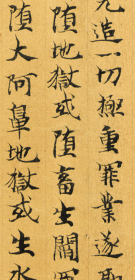 造一切極重罪業遂
墮地獄或墮畜生閻
墮大阿鼻地獄或生水